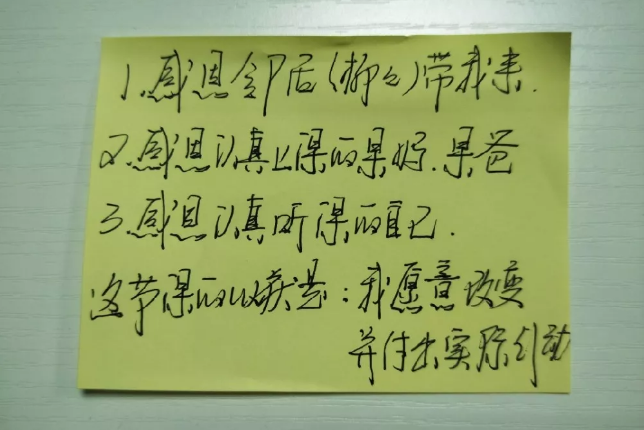 1.感恩邻居(柳么)带我来.
2.感恩认真上课的果妈.果爸
3.感恩认真听课的自己.
这节课的收获是：我愿意改变
并付出实际行动